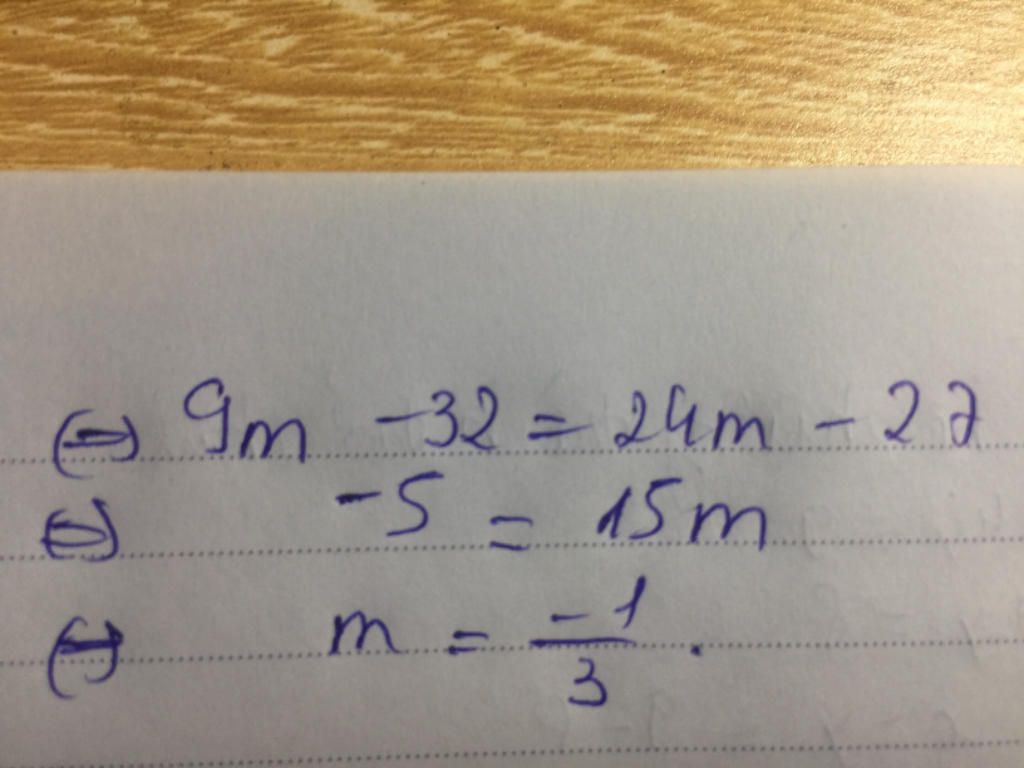 ⇔ 9m - 32 = 24m - 27
⇔ -5 = 15m
⇔ m = -1/3.